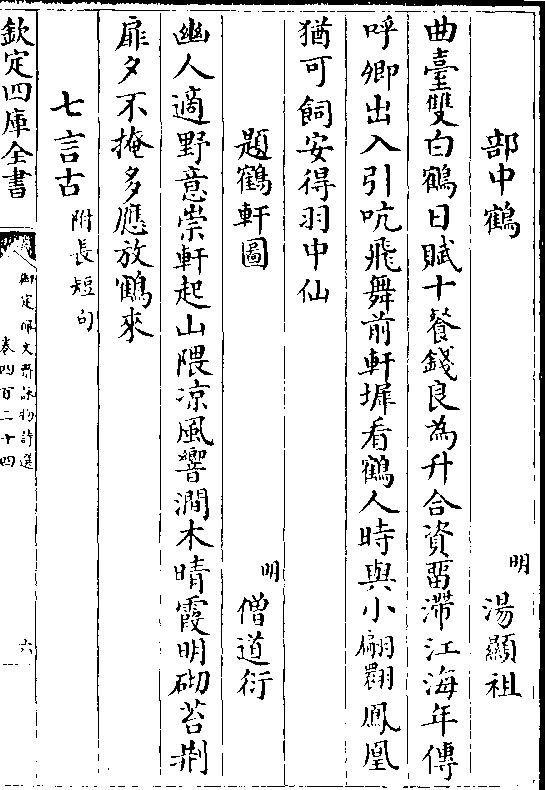 部中鶴
明 湯顯祖
曲臺雙白鶴日賦十餐錢良為升合資畱滯江海年傳
呼卿出入引吭飛舞前軒墀看鶴人時與小翩翾鳳凰
猶可飼安得羽中仙
題鶴軒圖
明 僧道衍
幽人適野意崇軒起山隈凉風響澗木晴霞明砌苔荆
扉夕不掩多應放鶴來
七言古 附長短句
欽定四庫全書
御定佩文齋詠物詩選
卷四百二十四
六